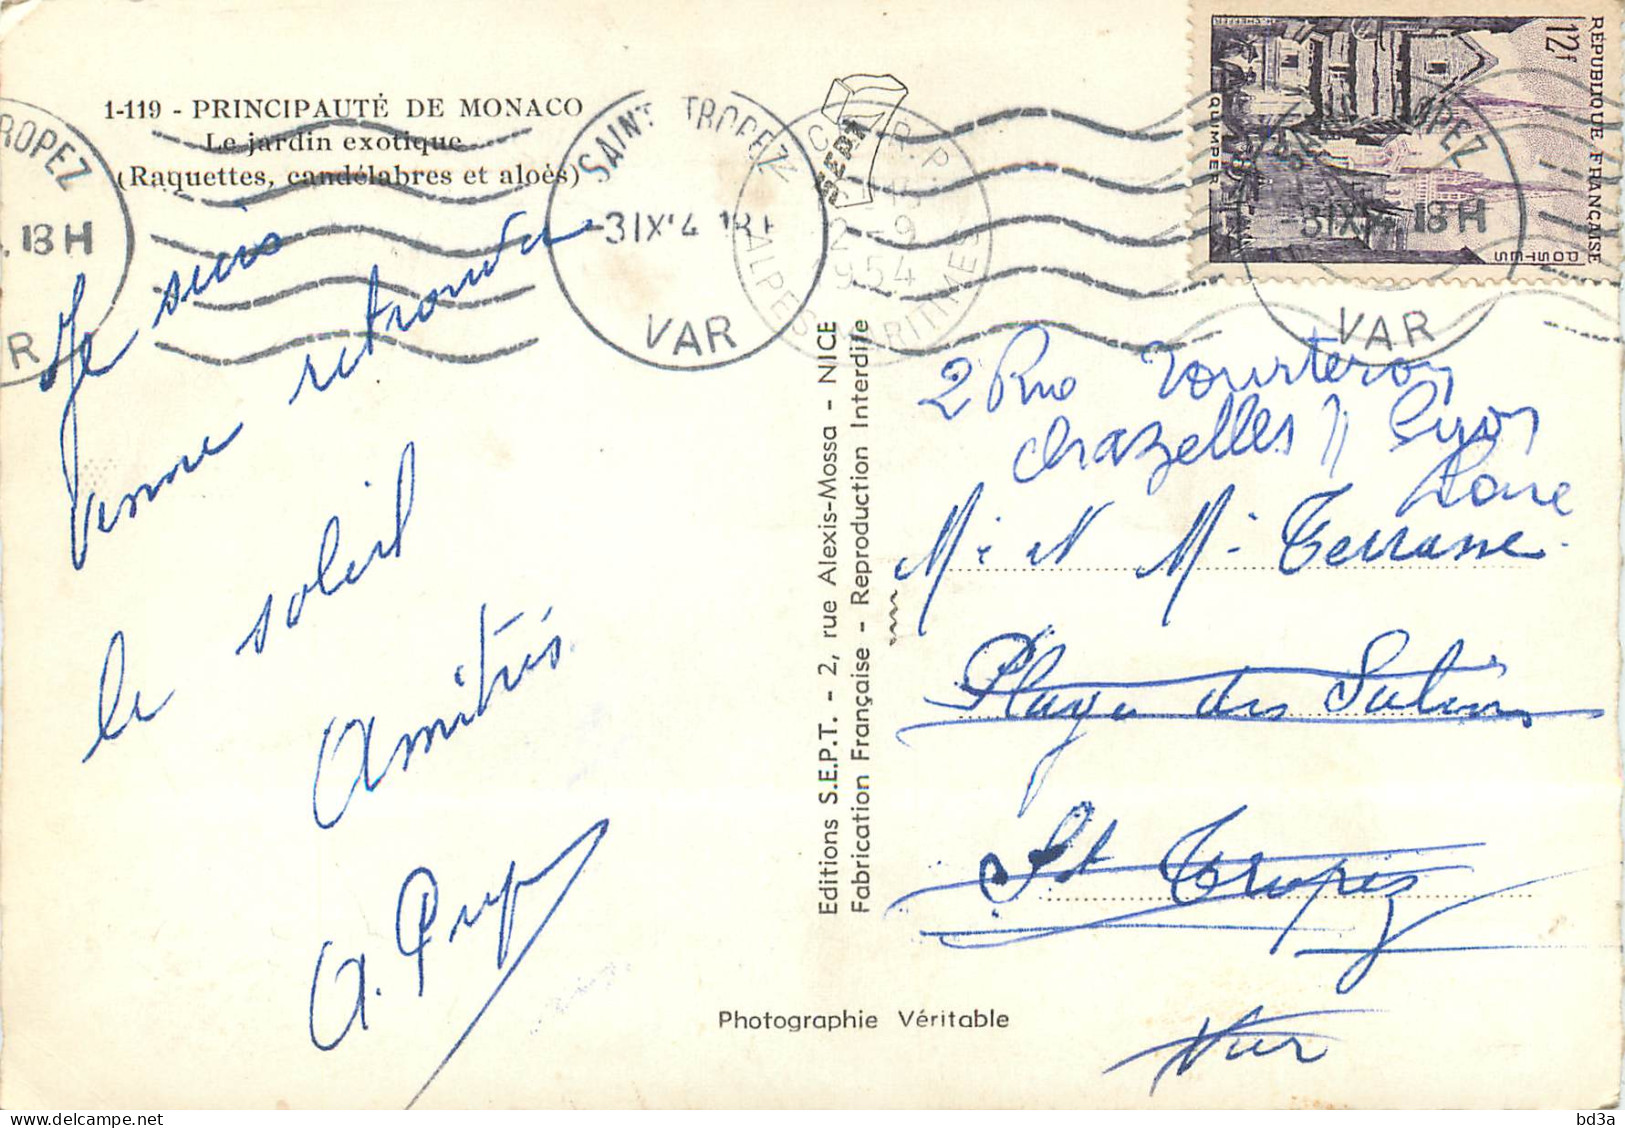 1-119 - PRINCIPAUTÉ DE MONACO
Le jardin exotique
(Raquettes, candélabres et aloès)
Je suis
venue retrouver
le soleil
Amitiés
ROPEZ
18 H
R
SAINT TROPEZ
-3 IX 4 18 H
VAR
C R.P.
2 -9
954
ALPES MARITIMES
SEPT
RÉPUBLIQUE FRANÇAISE
12f
POSTES
QUIMPER
OPEZ
-3 IX 4 18 H
VAR
Editions S.E.P.T. - 2, rue Alexis-Mossa - NICE
Fabrication Française - Reproduction Interdite
2 Rue Tourteron
Chazelles s/ Lyon
Loire
Mr et Me Terrasse
Plage des Salins
St Tropez
Var
Photographie Véritable
bd3a